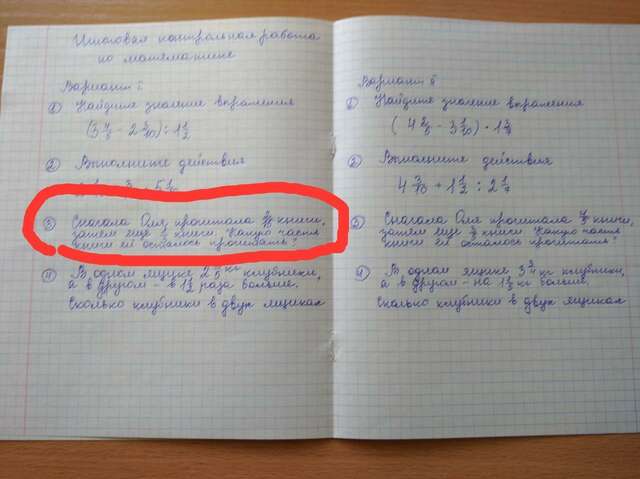 Итоговая контрольная работа
по математике
Вариант I
① Найдите значение выражения
② Выполните действия
③ Сначала Оля прочитала книги,
затем еще книги. Какую часть
книги ей осталось прочитать?
④ В одном ящике 2 кг клубники,
а в другом - в 1 1/2 раза больше.
Сколько клубники в двух ящиках
Вариант
① Найдите значение выражения
② Выполните действия
4 3/10 + 1 1/2 : 2 1/7
③ Сначала Оля прочитала книги,
затем еще книги. Какую часть
книги ей осталось прочитать?
④ В одном ящике 3 кг клубники,
а в другом - на кг больше.
Сколько клубники в двух ящиках